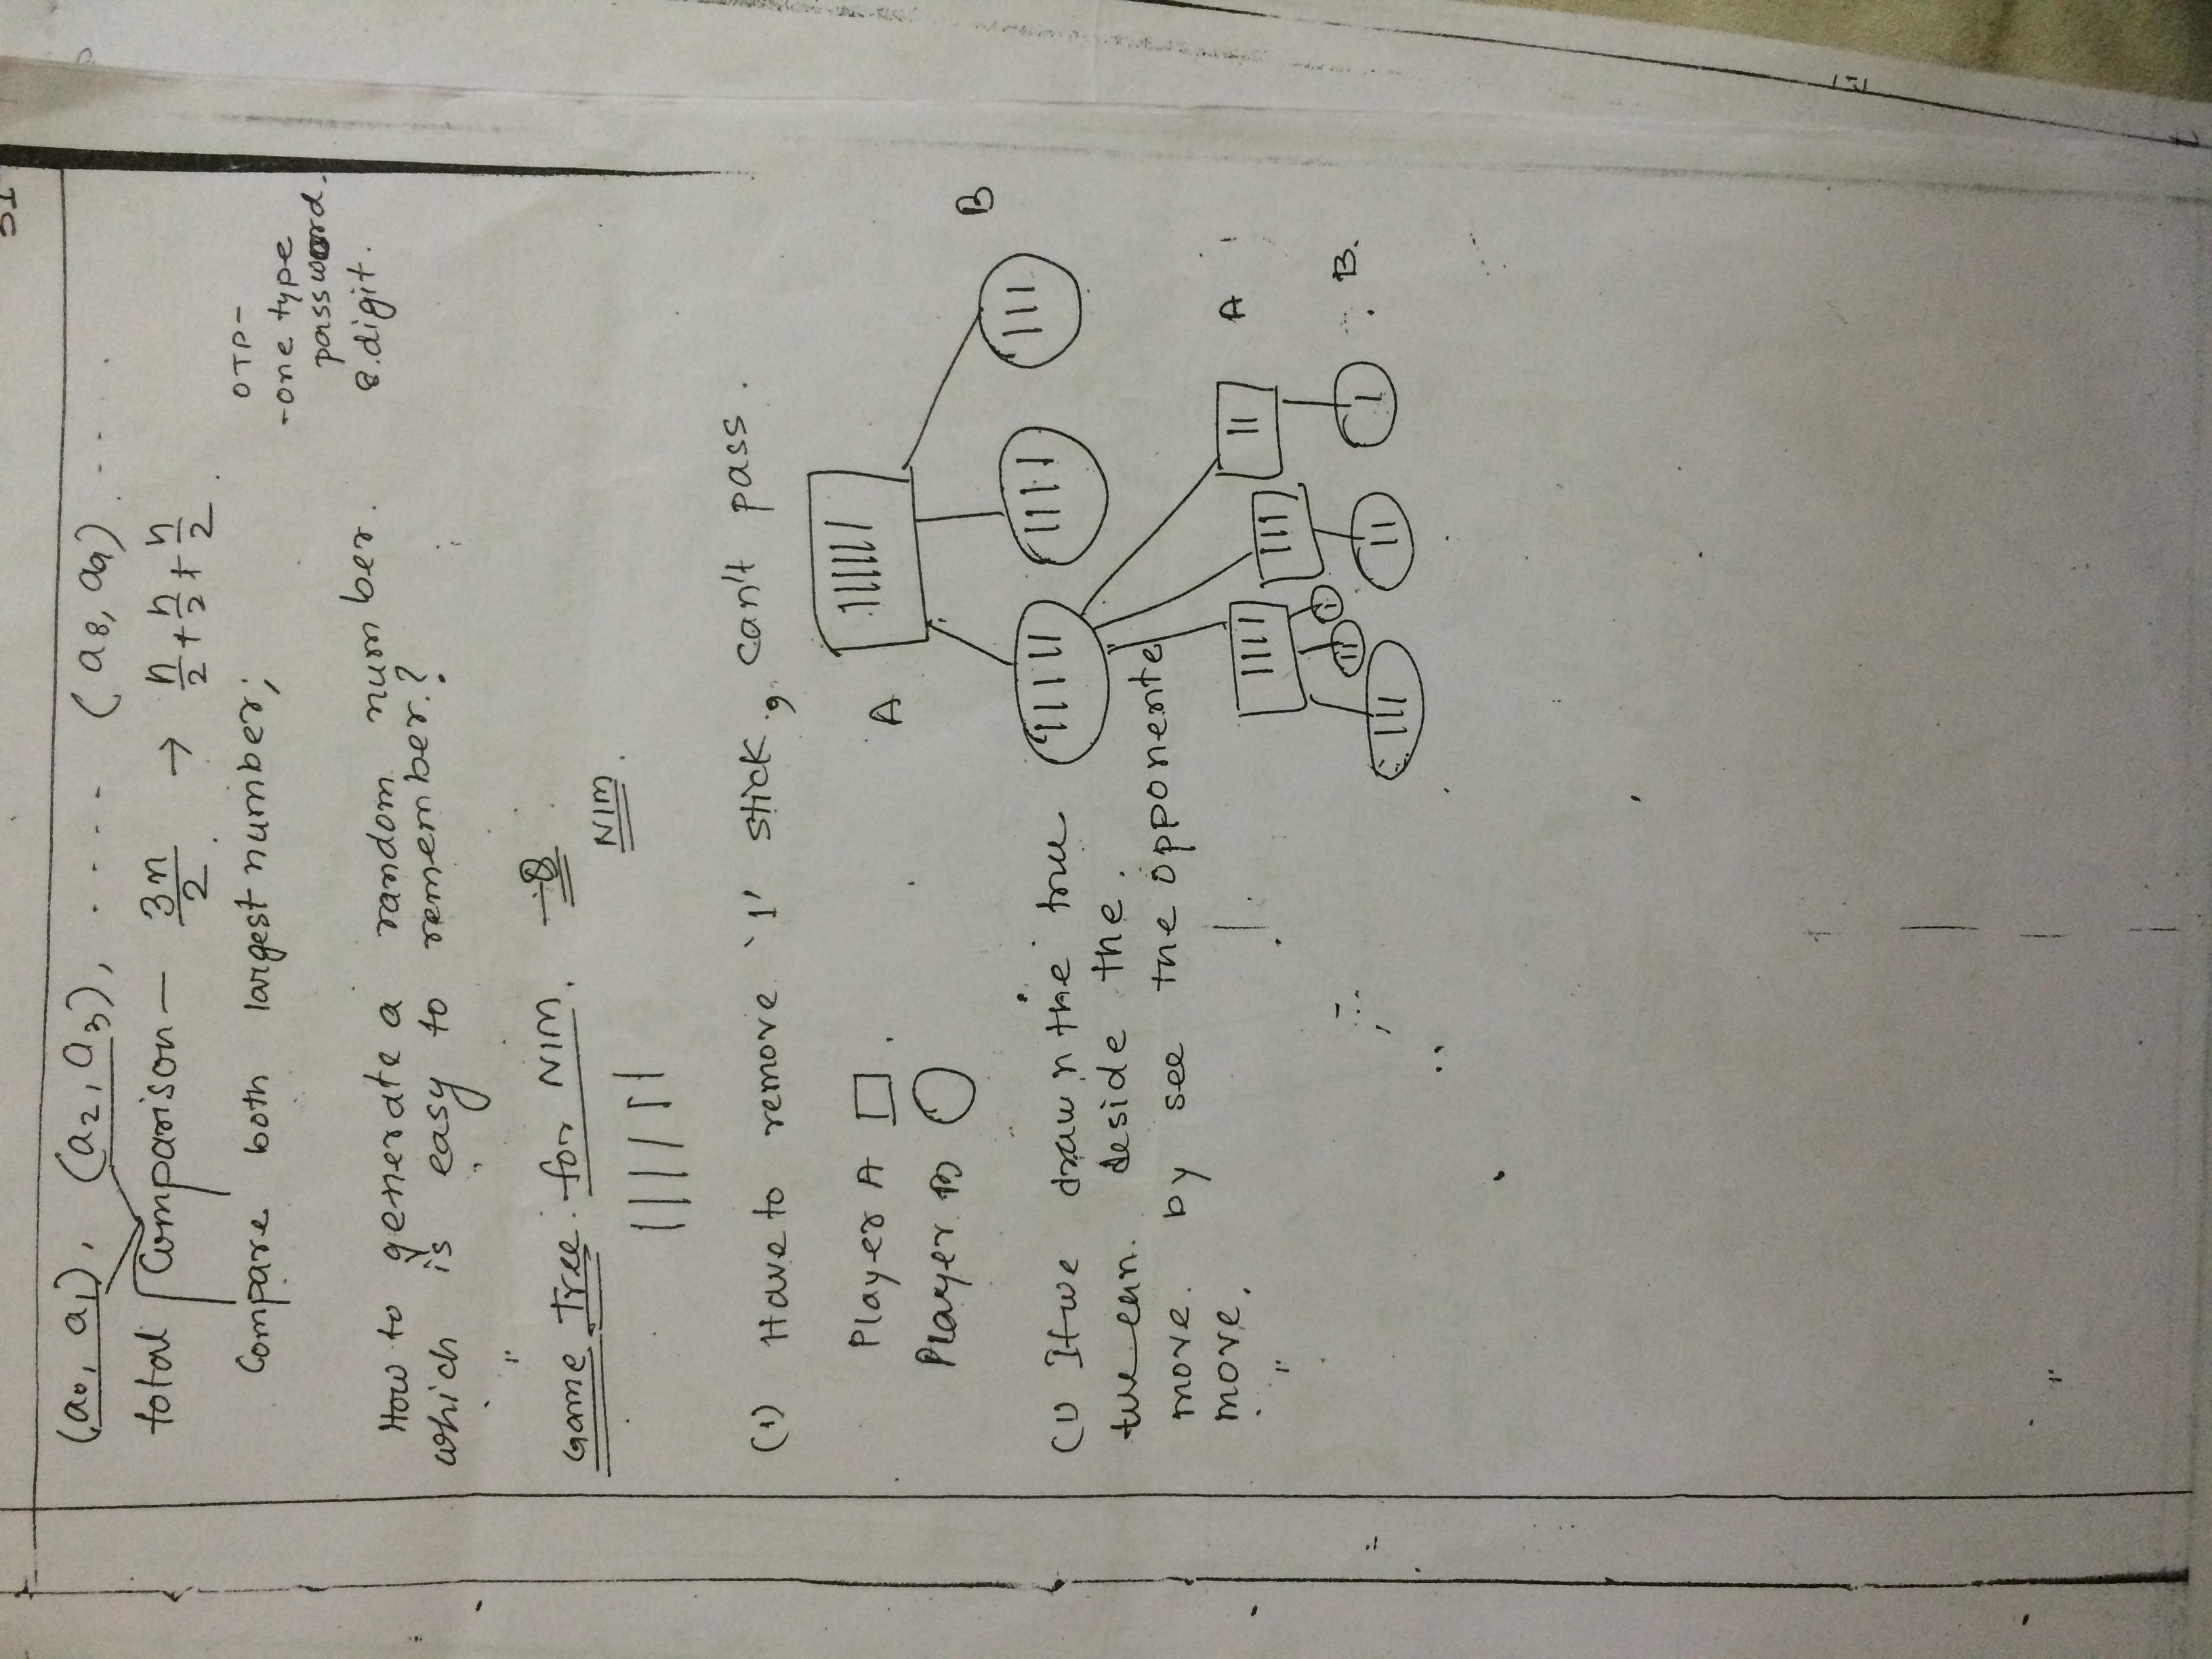 31
(a₀, a₁), (a₂, a₃), .... (a₈, a₉) ....
total Comparison — 3n/2 → n/2 + n/2 + n/2
Compare both largest number;
OTP-
-one type
password.
8.digit.
How to generate a random number.
which is easy to remember.?
Game Tree for NIM. -8
NIM.
(1) Have to remove '1' stick, can't pass.
Player A
Player B
A
B
(1) If we drawn the tree
we can. deside the.
move. by see the opponente
move.
A
B.